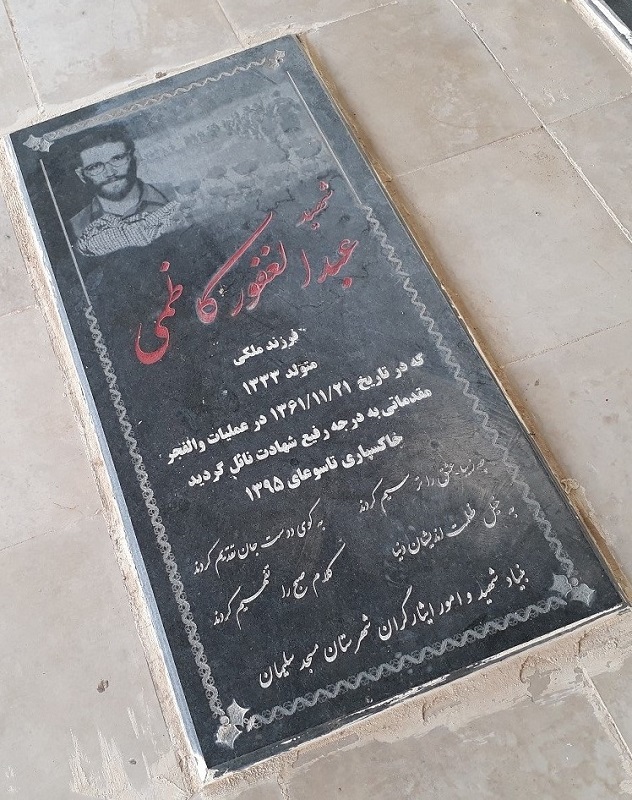 شهید
عبدالغفور کاظمی
فرزند ملکی
متولد ۱۳۳۳
که در تاریخ ۱۳۶۱/۱۱/۲۱ در عملیات والفجر
مقدماتی به درجه رفیع شهادت نائل گردید
خاکسپاری تاسوعای ۱۳۹۵
چه زیبا عشق را ترسیم کردند
به کوی دوست جان تقدیم کردند
به خیل ظلمت اندیشان دنیا
کلام صبح را تفهیم کردند
بنیاد شهید و امور ایثارگران شهرستان مسجد سلیمان